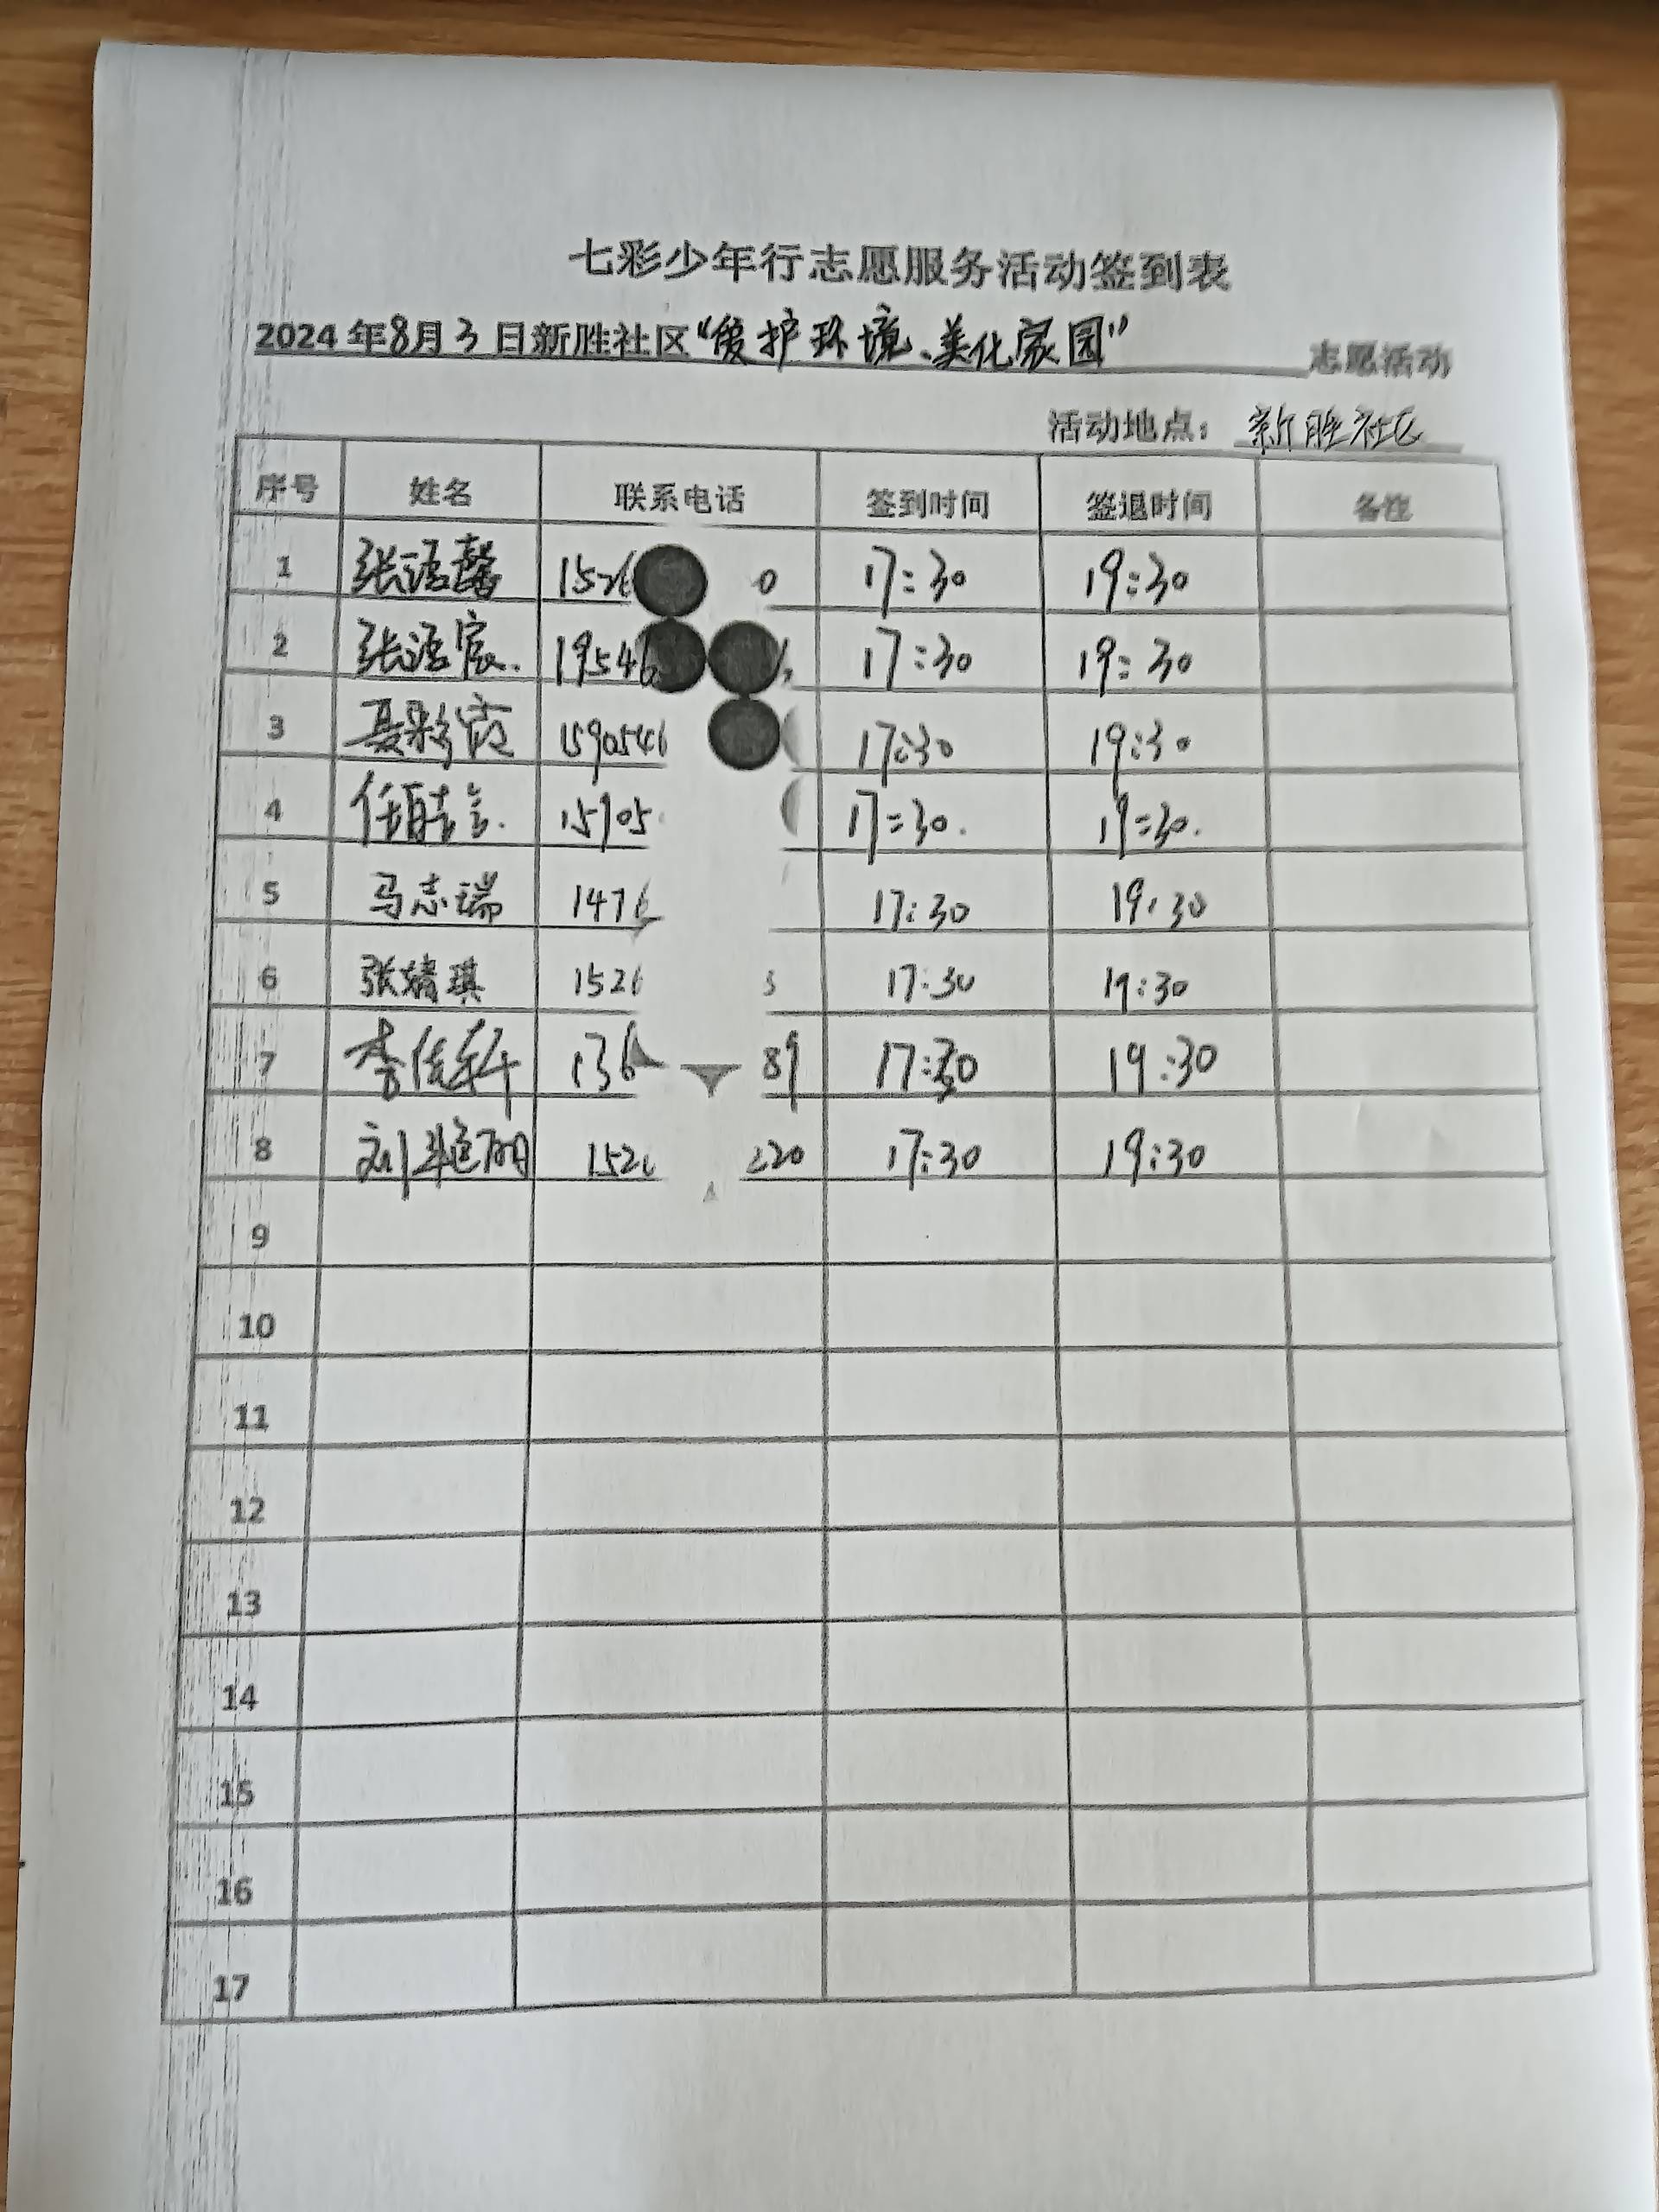 七彩少年行志愿服务活动签到表
2024年8月3日新胜社区“爱护环境、美化家园” 志愿活动
活动地点：新胜社区
序号 姓名 联系电话 签到时间 签退时间 备注
1 张语馨 1526 0 17:30 19:30
2 张语宸. 19546 17:30 19:30
3 聂彩霞 1590546 17:30 19:30
4 15905 17:30. 19:30.
5 马志瑞 1476 17:30 19:30
6 张婧琪 1526 17:30 19:30
7 李佳轩 136 89 17:30 19:30
8 刘 152 220 17:30 19:30
9
10
11
12
13
14
15
16
17